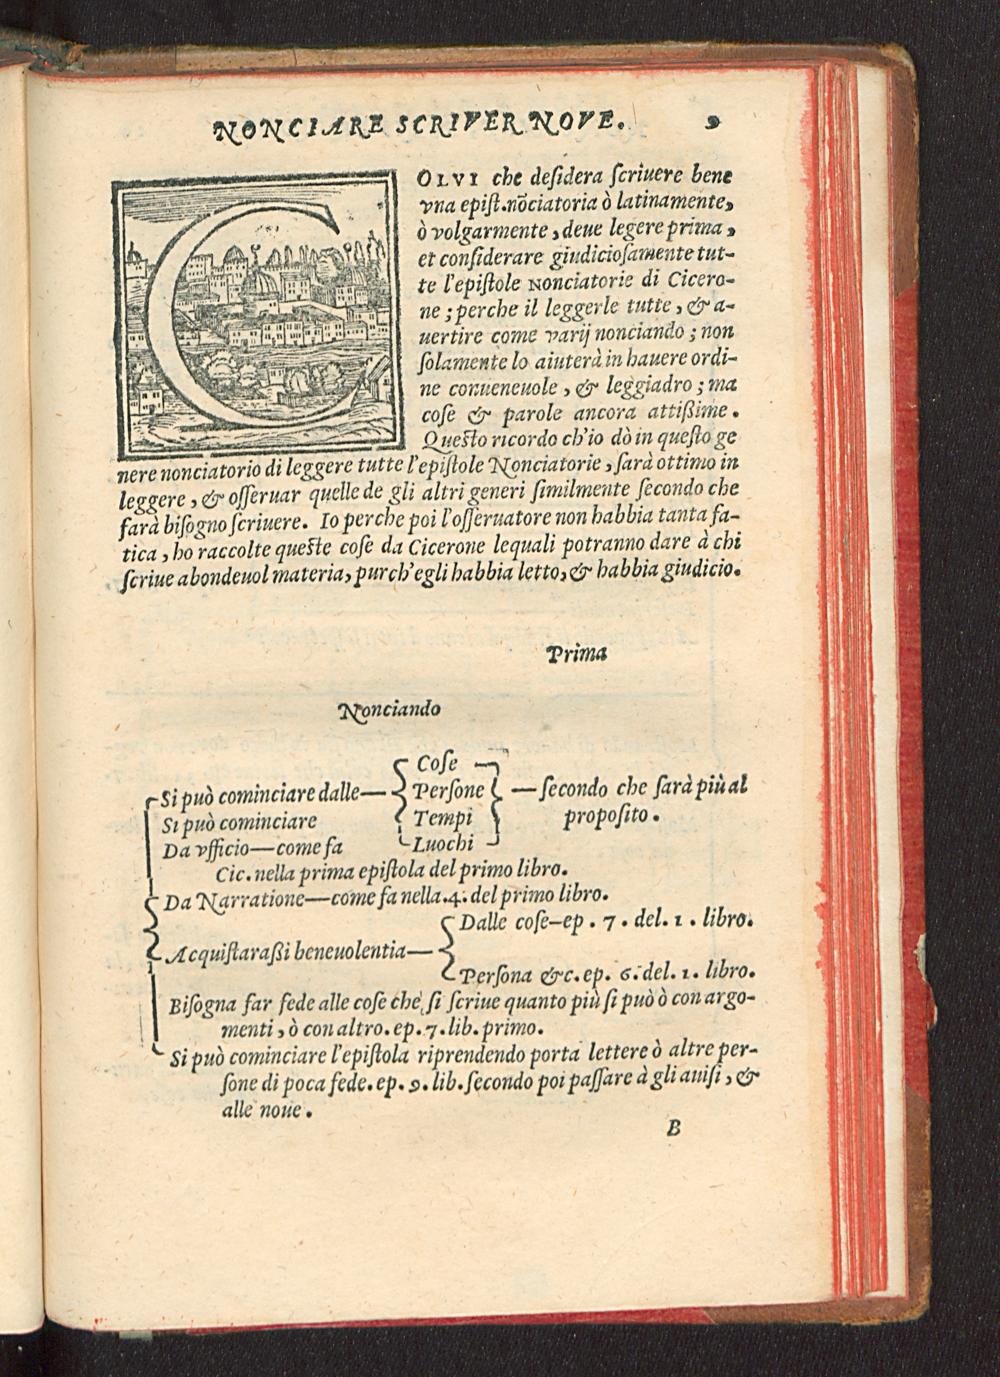 NONCIARE SCRIVER NOVE. 9
COLVI che desidera scriuere bene
vna epist.nōciatoria ò latinamente,
ò volgarmente, deue legere prima,
et considerare giudiciosamente tut-
te l'epistole Nonciatorie di Cicero-
ne; perche il leggerle tutte, & a-
uertire come varij nonciando; non
solamente lo aiuterà in hauere ordi-
ne conueneuole, & leggiadro; ma
cose & parole ancora attißime.
Questo ricordo ch'io dò in questo ge
nere nonciatorio di leggere tutte l'epistole Nonciatorie, sarà ottimo in
leggere, & osseruar quelle de gli altri generi similmente secondo che
farà bisogno scriuere. Io perche poi l'osseruatore non habbia tanta fa-
tica, ho raccolte queste cose da Cicerone lequali potranno dare à chi
scriue abondeuol materia, purch'egli habbia letto, & habbia giudicio.
Prima
Nonciando
Si può cominciare dalle— Cose
Persone
Tempi
Luochi
—secondo che sarà più al
proposito.
Si può cominciare
Da vfficio—come fa
Cic. nella prima epistola del primo libro.
Da Narratione—come fa nella.4. del primo libro.
Acquistaraßi beneuolentia—
Dalle cose—ep. 7. del. 1. libro.
Persona &c. ep. 6. del. 1. libro.
Bisogna far fede alle cose che si scriue quanto più si può ò con argo-
menti, ò con altro. ep. 7. lib. primo.
Si può cominciare l'epistola riprendendo porta lettere ò altre per-
sone di poca fede. ep. 9. lib. secondo poi passare à gli auisi, &
alle noue.
B